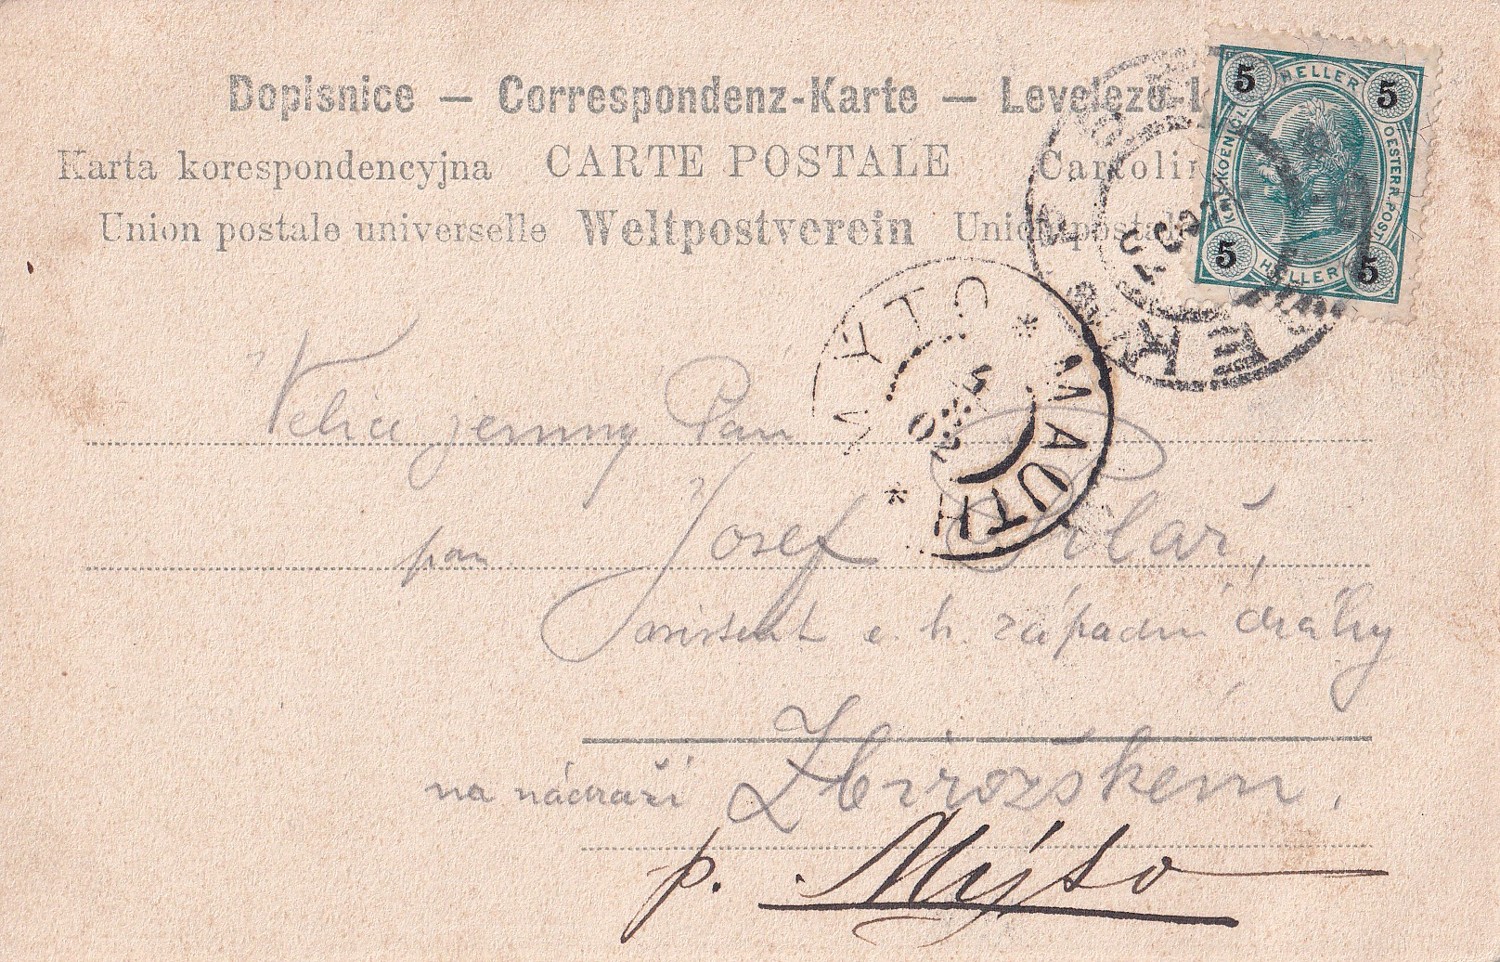 Dopisnice — Correspondenz-Karte — Levelező-l
Karta korespondencyjna CARTE POSTALE Cartolin
Union postale universelle Weltpostverein Union postale
5 HELLER 5
KAIS. KOENIGL. OESTERR. POST
5 HELLER 5
MÝTO * MAUTH *
Velice jemný Pan
pan Josef Pilař,
assistent c. k. západní dráhy
na nádraží Zbirožském.
p. Mýto